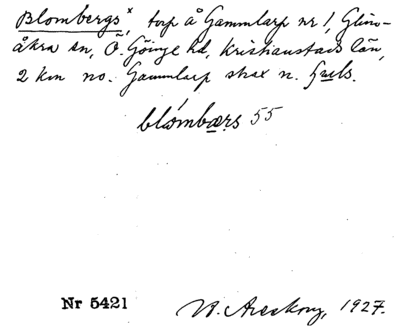 Blombergs x, torp å Gammlarp nr 1, Glims-
åkra sn, Ö. Göinge hd, Kristianstads län,
2 km no. Gammlarp strax n. Gruls.
blómbærs 55
Nr 5421
W. Areskog, 1927.